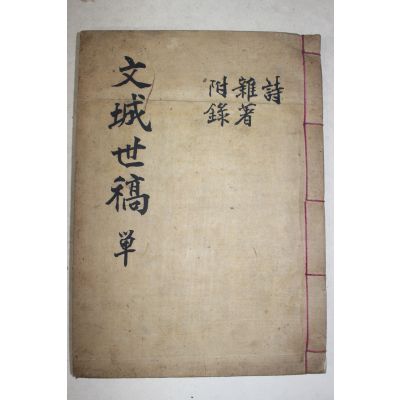 詩
雜著
附錄
文城世稿 單